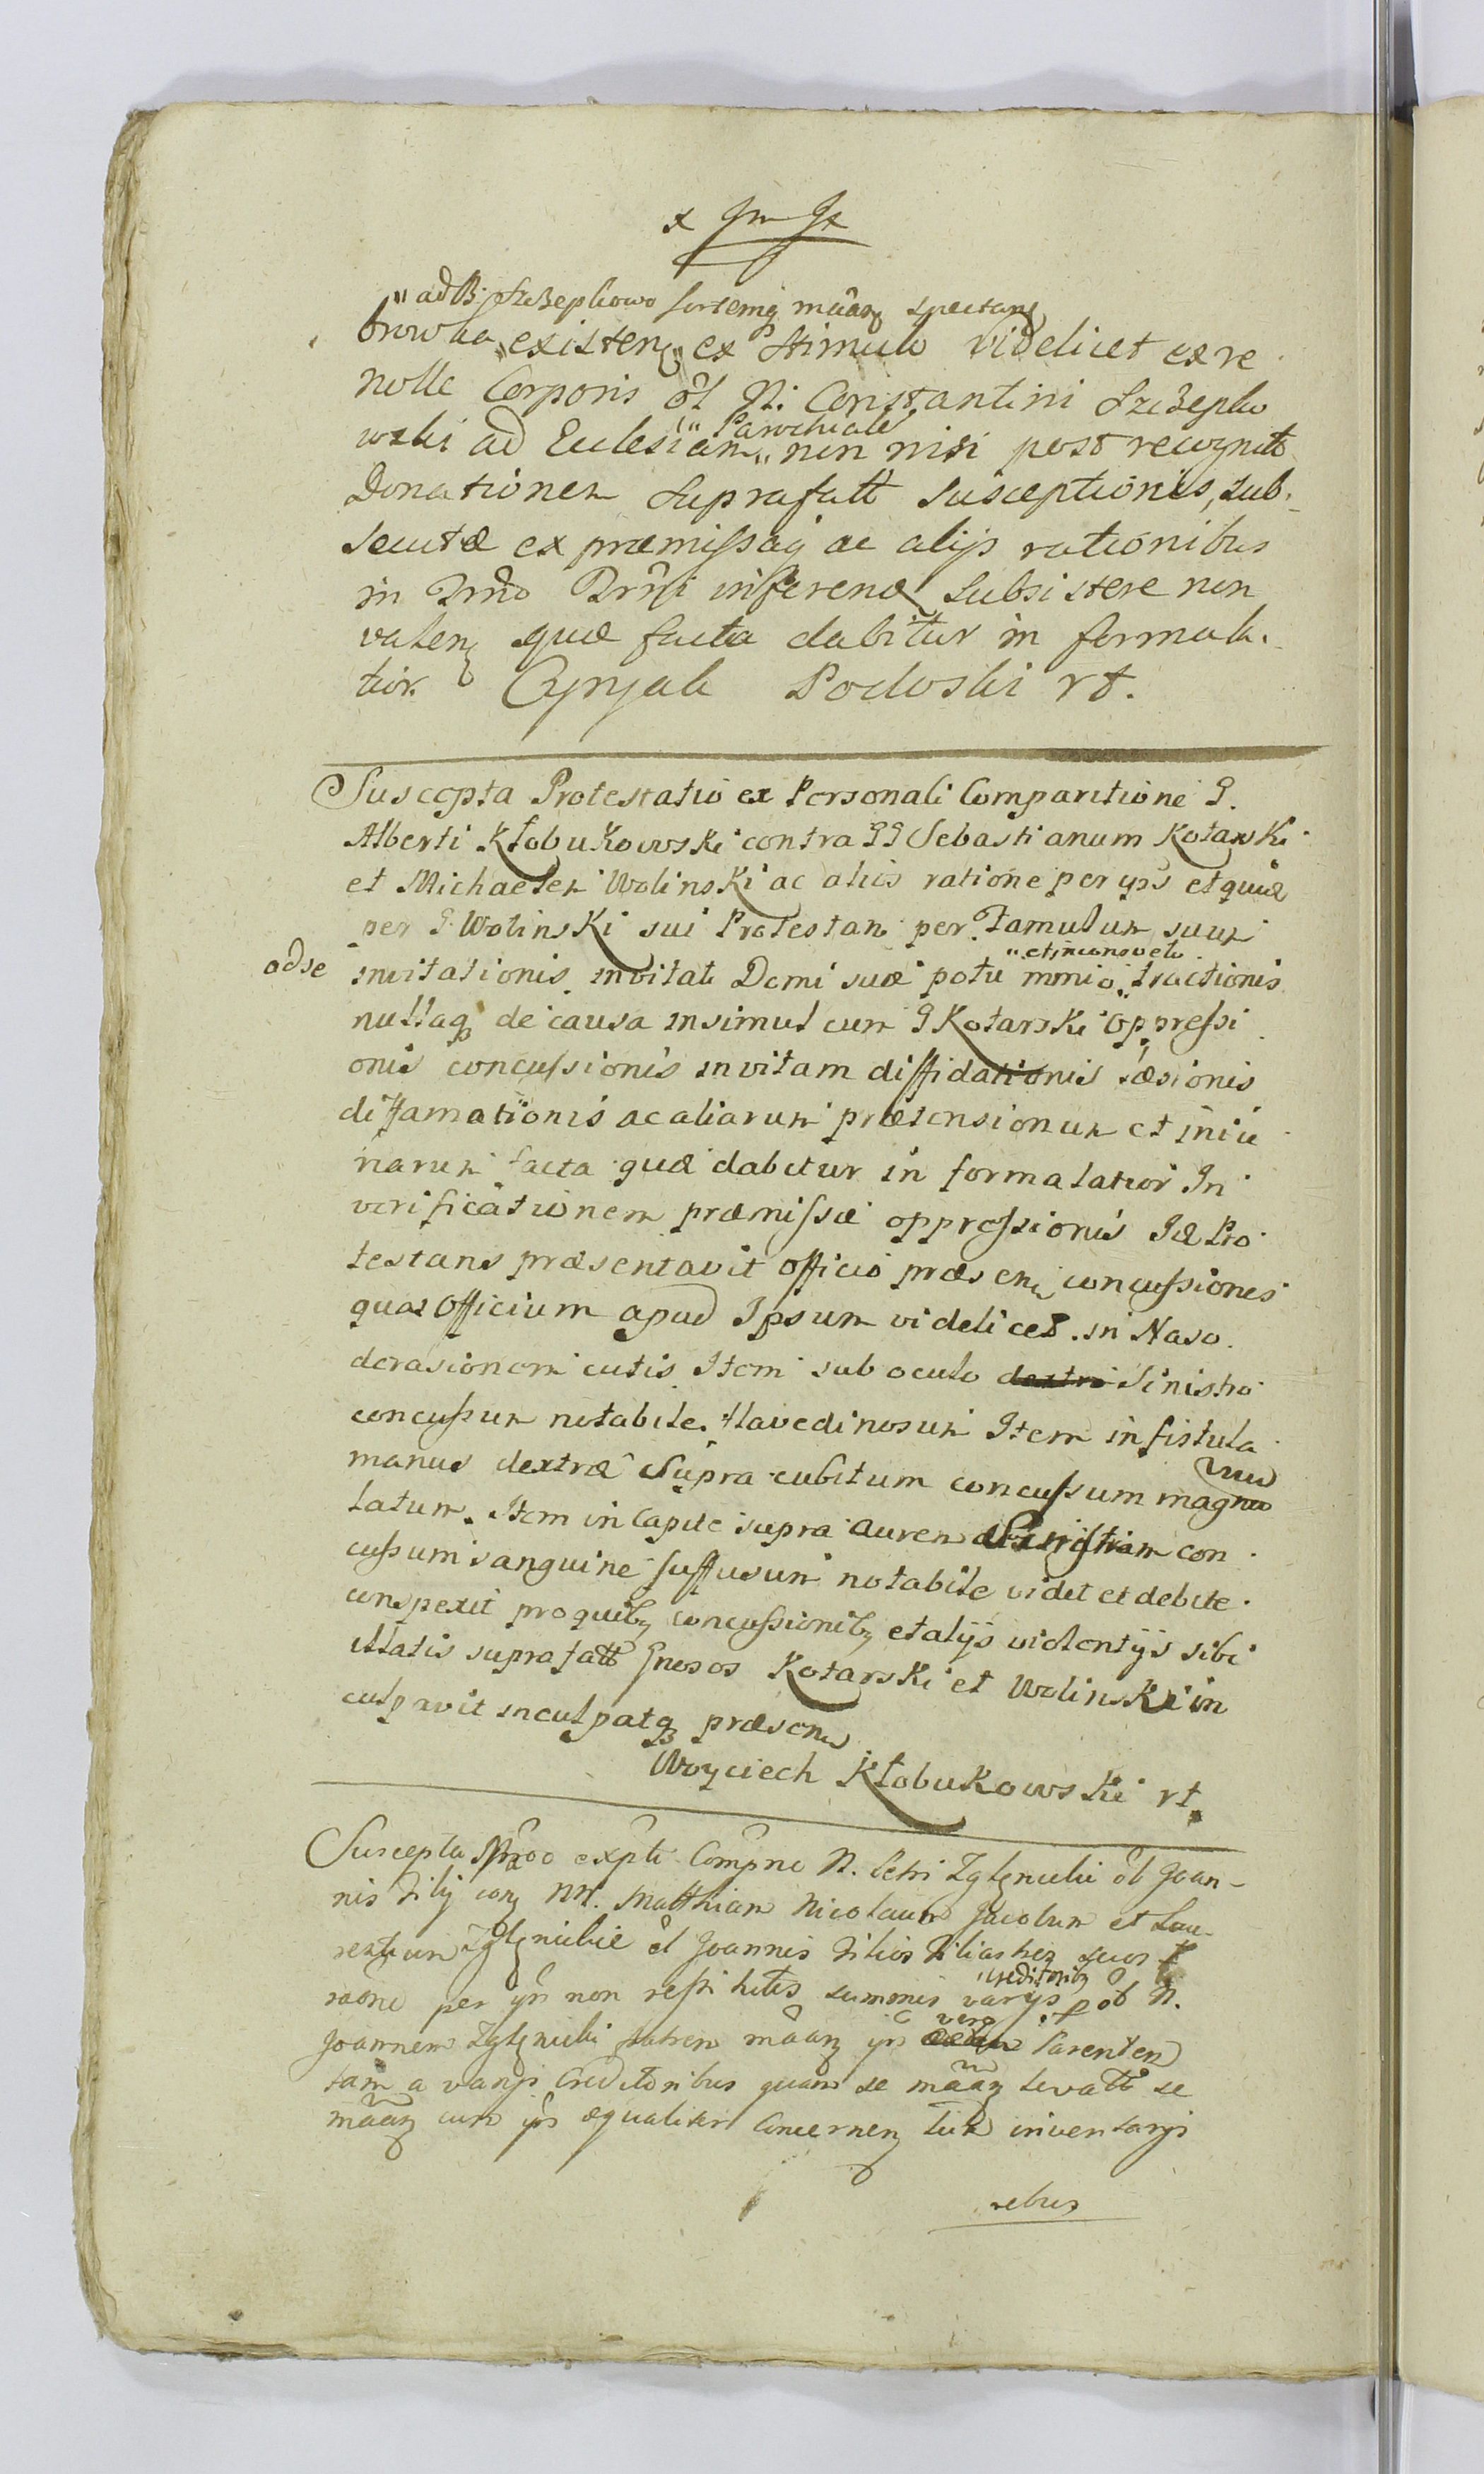 "ad B. Szczepkowo sortemq. mãaq spectanq
browka "existenq" ex Stimulo videlicet ex re
nolle Corporis ol N. Constantini Szczepko
wski ad Eclesiam "Parochiale" non nisi post recognitt
Donationem suprafatt susceptionis, sub-
secutæ ex præmissaq ac alijs rationibus
in inferend subsistere non
valenq quæ facta dabitur in forma la-
tior. Podoski rt.
Suscepta Protestatio ex Personali Comparitione G.
Alberti Kłobukowski contra GG Sebastianum Kotarski
et Michaelem Wolinski ac alios ratione per ipsos et quidē
per G. Wolinski sui Protestan per Famulum suum
ad se invitationis invitati Domi suæ potu nimio "et inconsveto" tractionis
nullaq de causa insimul cum G Kotarski oppressi
onis concussionis in vitam diffidationis læsionis
diffamationis ac aliarum prætensionum et iniu
riarum facta quæ dabitur in forma latior In
verificationem præmissæ oppressionis Id Pro
testans præsentavit Officio præsenti concussiones
quas Officium apud Ipsum videlicet in Naso
derasionem cutis Item sub oculo dextri Sinistro
concussum notabile flavedinosum Item in fistula
manus dextræ Supra cubitum concussum magnum
latum. Item in Capite supra aurem Sinistram con
cussum sanguine suffusum notabile vidit et debite
conspexit pro quibq concussionibq et alijs violentijs sibi
illatis suprafatt Gnosos Kotarski et Wolinski in
culpavit inculpatq præsens
Woyciech Kłobukowski rt.
Suscepta expli Compne N. Petri ol Joan-
nis Filij conq NN. Matthiam Nicolaum Jacobum et Lau-
rentium ol Joannis Filios Filiasten suos
raone per ips non summis varijs "creditoribq" p ol N.
Joannem fratrem mãaq ips vero Parentem
tam a varijs Creditoribus quam se mãaq levatt se
mãaq cum ips æqualiter Concernenq tum inventarijs
rebus